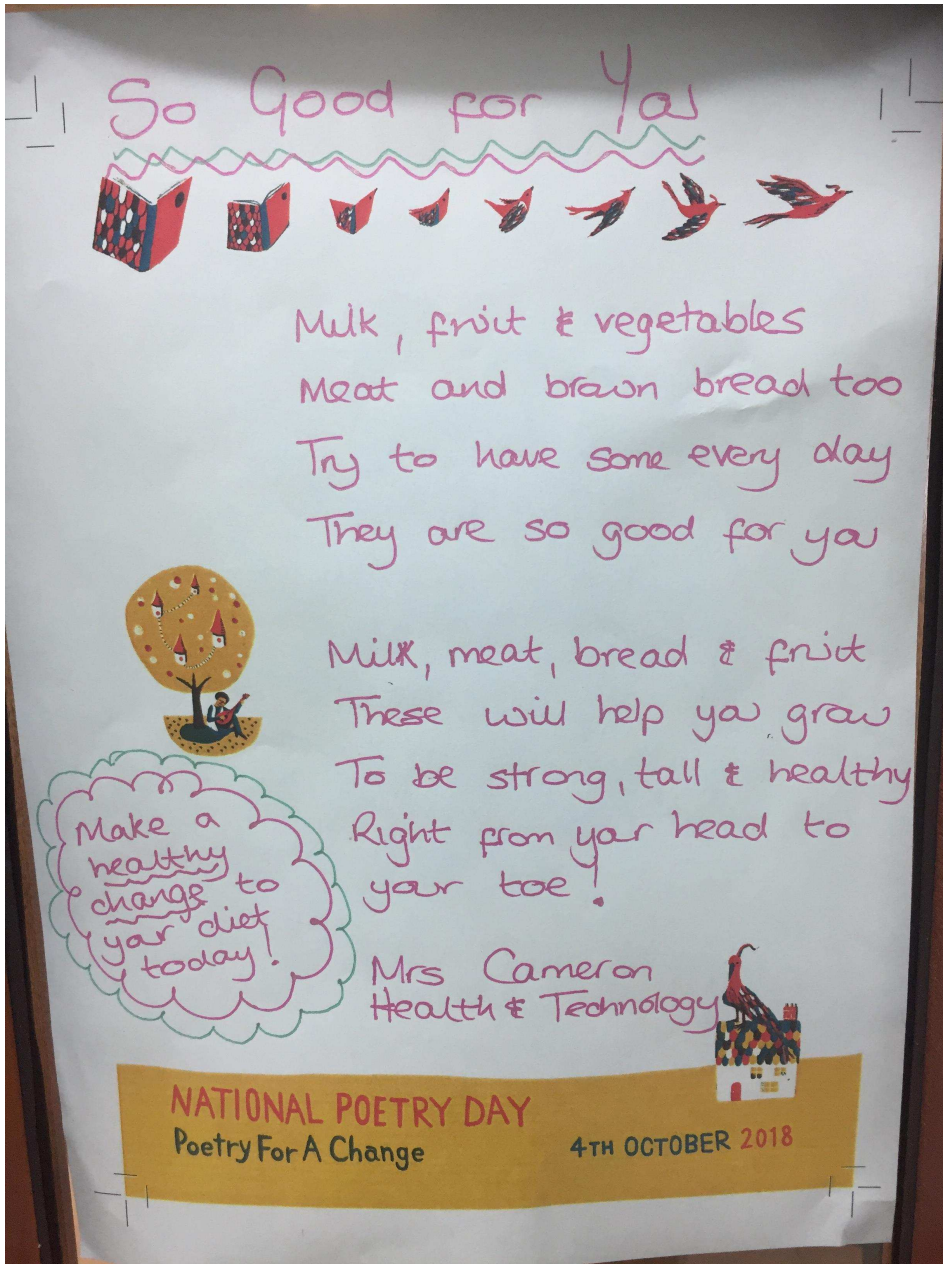 So Good for You
Milk, fruit & vegetables
Meat and brown bread too
Try to have some every day
They are so good for you
Milk, meat, bread & fruit
These will help you grow
To be strong, tall & healthy
Right from your head to
your toe!
Make a
healthy
change to
your diet
today!
Mrs Cameron
Health & Technology
NATIONAL POETRY DAY
Poetry For A Change
4TH OCTOBER 2018